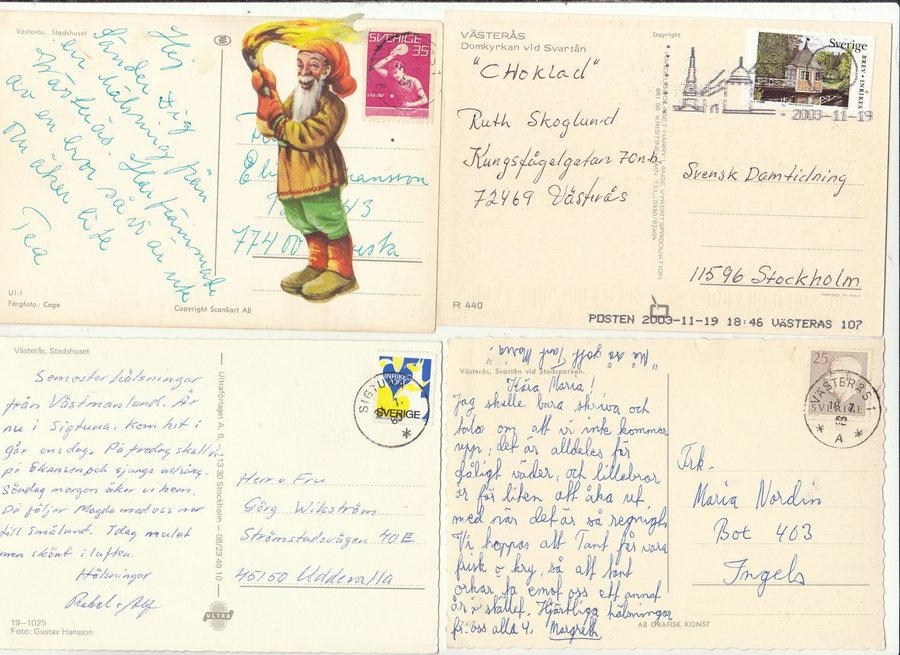 Västerås. Stadshuset
Hej
Sänder Dig
en hälsning från
Västerås.
av en bror så vi är inte
Du åker
Tea
SVERIGE
35
77400
U1-1
Färgfoto: Cege
Copyright Scankort AB
VÄSTERÅS
Domkyrkan vid Svartån
Copyright
"CHoklad"
Ruth Skoglund
Kungsfågelgatan 70 nb.
72469 Västerås
Sverige
BREV • INRIKES
2003-11-19
Svensk Damtidning
11595 Stockholm
R 440
PRINTED IN ITALY
POSTEN 2003-11-19 18:46 VÄSTERÅS 107
Västerås, Stadshuset
Semesterhälsningar
från Västmanland. Är
nu i Sigtuna, kom hit i
går onsdag. På fredag skall vi
på Skansen och sjunga allsång.
Söndag morgon åker vi hem.
Då följer Magda med oss ner
till Småland. Idag mulet
men skönt i luften.
Hälsningar
Rakel o Alf
19-1025
Foto: Gustav Hansson
Ultraförlagen A. B. - 113 30 Stockholm - 08/23 49 10
ULTRA
SIGTUNA
INRIKES
SVERIGE
Herr o Fru
Görg Wiksström
Strömstadsvägen 40E
45150 Uddevalla
Västerås, Svartån vid Stadsparken.
"Må så gott Tant Maria"
Kära Maria!
Jag skulle bara skriva och
tala om att vi inte kommer
upp, det är alldeles för
dåligt väder, och lillebror
är för liten att åka ut
med när det är så regnigt.
Vi hoppas att Tant får vara
frisk o kry, så att tant
orkar ta emot oss ett annat
år i stället. Hjärtliga hälsningar
fr. oss alla 4. Margreth
25
SVERIGE
VÄSTERÅS 1
A
Frk.
Maria Nordin
Box 403
Ingels
AB GRAFISK KONST